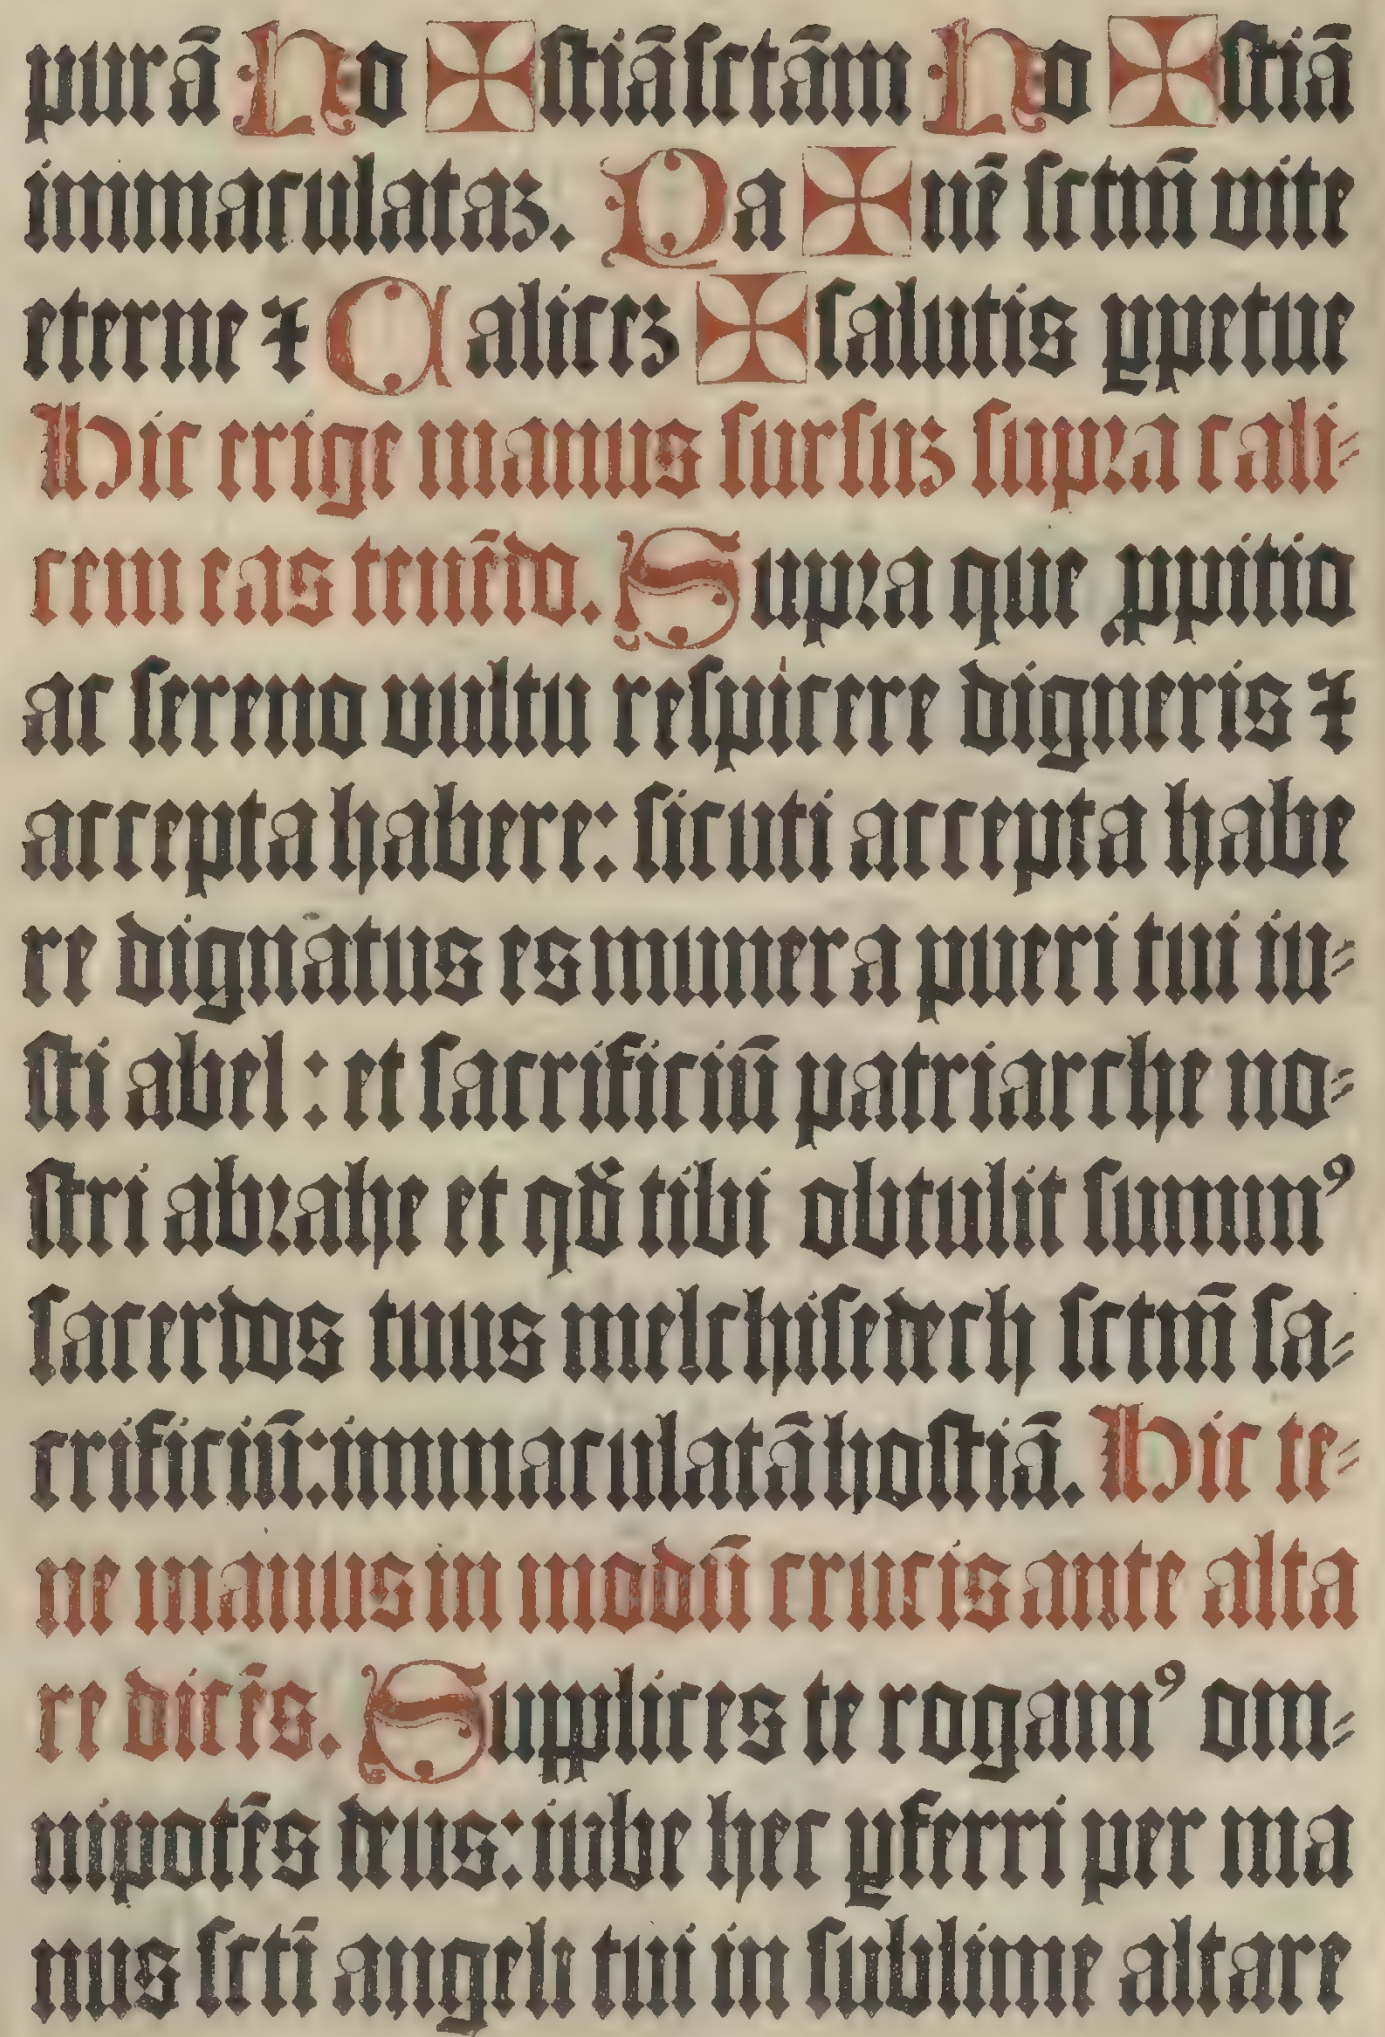 purā Ho ✠ ſtiā ſctām Ho ✠ ſtiā
immaculataꝫ. Pa ✠ nē ſctm̄ vite
eterne ⁊ Caliceꝫ ✠ ſalutis ꝑpetue
Hic erige manus ſurſuꝫ ſupꝛa cali⸗
cem eas tenēdo. Supꝛa que ꝓpitio
ac ſereno vultu reſpicere digneris ⁊
accepta habere: ſicuti accepta habe
re dignatus es munera pueri tui iu⸗
ſti abel : et ſacrificiū patriarche no⸗
ſtri abꝛahe et qđ tibi obtulit ſummꝰ
ſacerdos tuus melchiſedech ſctm̄ ſa⸗
crificiū: immaculatā hoſtiā. Hic te⸗
ne manus in modū crucis ante alta
re dicēs. Supplices te rogamꝰ om⸗
nipotēs deus: iube hec ꝑferri per ma
nus ſctī angeli tui in ſublime altare